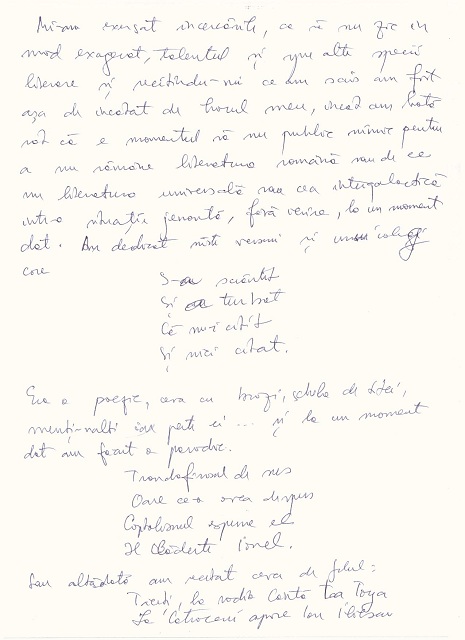 Mi-am exersat încercările, ca să nu zic în
mod exagerat, talentul și spre alte specii
literare și recitindu-mi ce am scris am fost
așa de încântat de harul meu, încât am hotă
rât că e momentul să nu public nimic pentru
a nu rămâne literatura română sau de ce
nu literatura universală sau cea intergalactică
într-o situație jenantă, fără verine, la un moment
dat. Am dedicat niște versuri și unui coleg
care
S-a scântit
Și a turbat
Că nu-i citit
Și nici citat.
Era o poezie, ceva cu brazi, de
... și la un moment
dat am făcut o parodie.
Trandafirul de
Oare ce-o vrea
Capitalismul spune el
Îl Ionel.
Sau altădată am ceva de felul:
la radio Cântă Toya
La Cotroceni apare Ion Iliescu